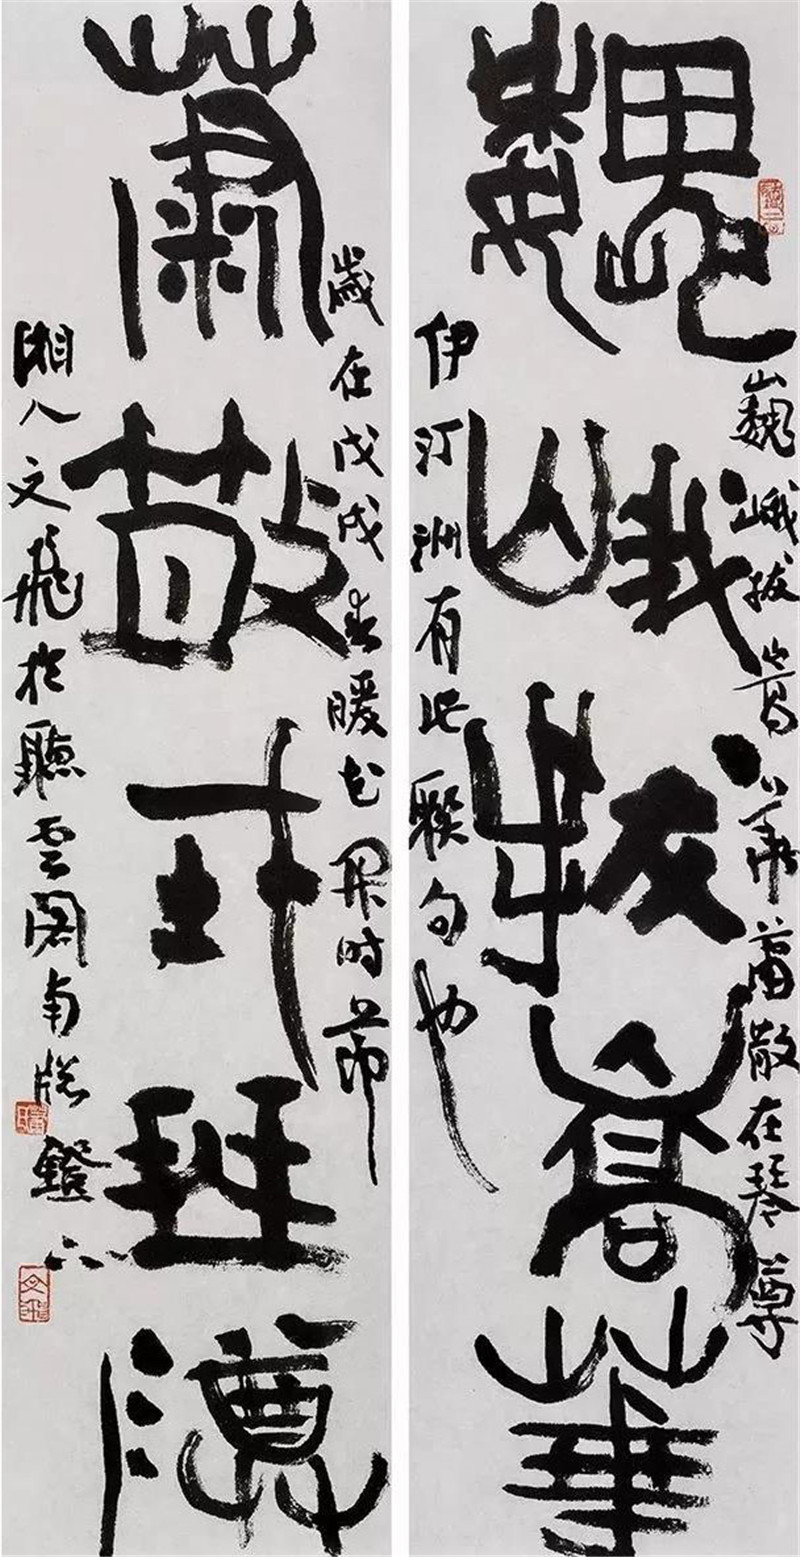 巍峨拔嵩華
巍峨拔嵩華蕭散在琴尊
伊汀洲有此聯句也
蕭散在琴尊
歲在戊戌春暖花開时節
湘人文飛於聽云閣南牕鐙下